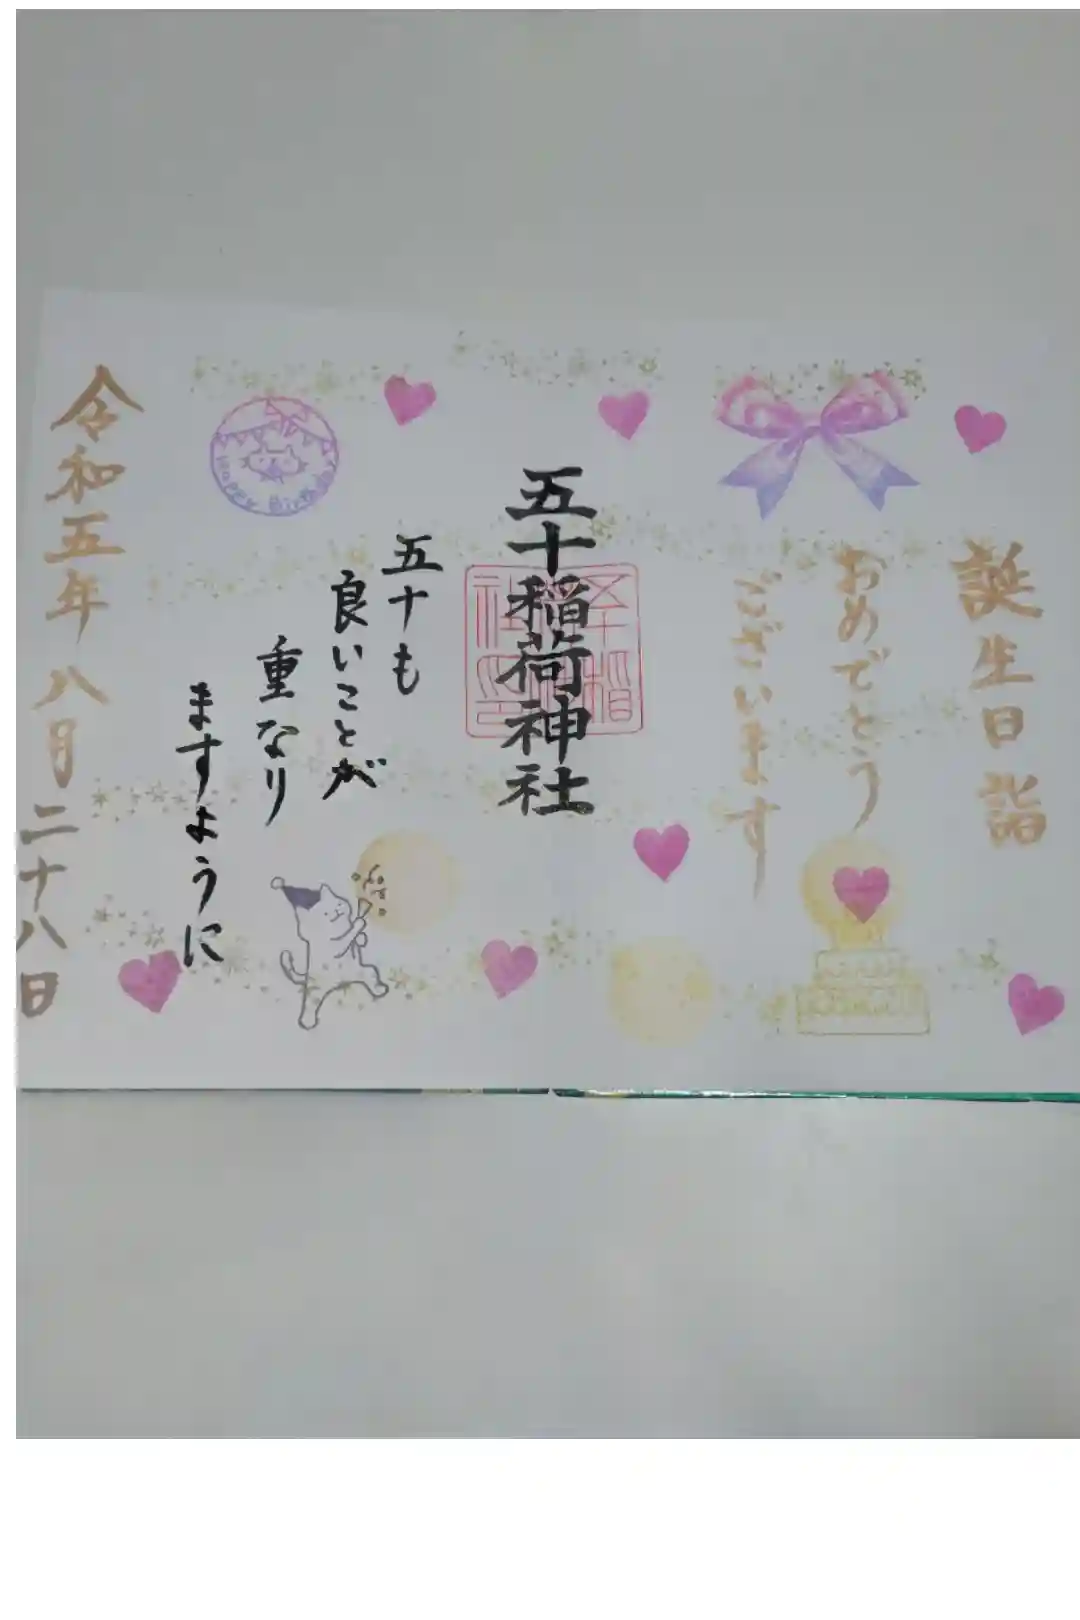 誕生日詣
おめでとう
ございます
五十稲荷神社
五十も
良いことが
重なり
ますように
Happy Birthday
令和五年八月二十八日